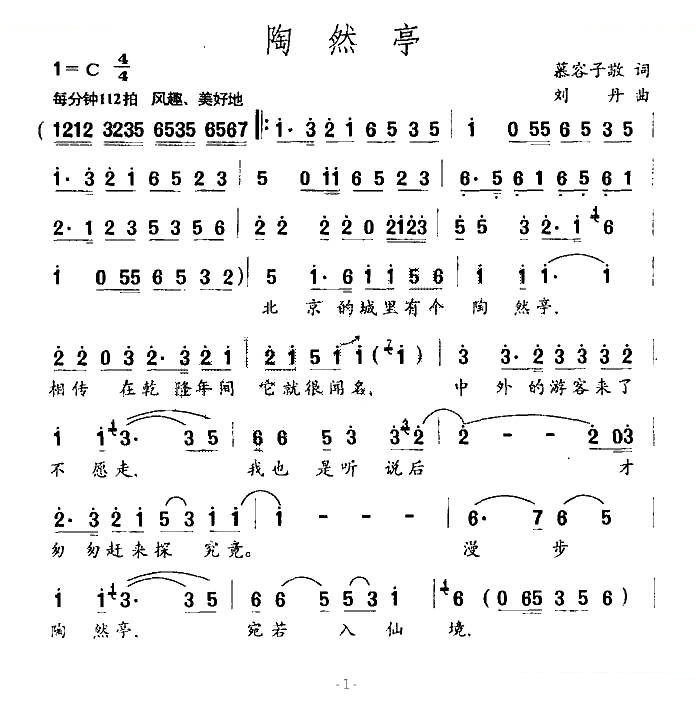 陶然亭
1=C 4/4
慕容子敬 词
每分钟112拍 风趣、美好地
刘 丹 曲
( 1212 3235 6535 6567 ‖: 1· 3 2 1 6 5 3 5 | 1 0 55 6 5 3 5 |
1· 3 2 1 6 5 2 3 | 5 0 11 6 5 2 3 | 6· 5 6 1 6 5 6 1 |
2· 1 2 3 5 3 5 6 | 2 2 2 2 0 2123 | 5 5 3 2· 1 6 |
1 0 55 6 5 3 2 ) | 5 1· 6 1 1 5 6 | 1 1 1· 1 |
北 京 的 城 里 有 个 陶 然 亭,
2 2 0 3 2· 3 2 1 | 2 1 5 1 1 ( 1 ) | 3 3· 2 3 3 3 2 |
相传 在乾隆年间 它就很闻名, 中 外 的 游 客 来 了
1 1 3· 3 5 | 6 6 5 3 3 2 | 2 - - 2 03 |
不 愿 走, 我 也 是 听 说 后 才
2· 3 2 1 5 3 1 1 | 1 - - - | 6· 7 6 5 |
匆 匆 赶 来 探 究 竟。 漫 步
1 1 3· 3 5 | 6 6 5 5 3 1 | 6 ( 0 65 3 5 ) |
陶 然 亭, 宛 若 入 仙 境,
-1-